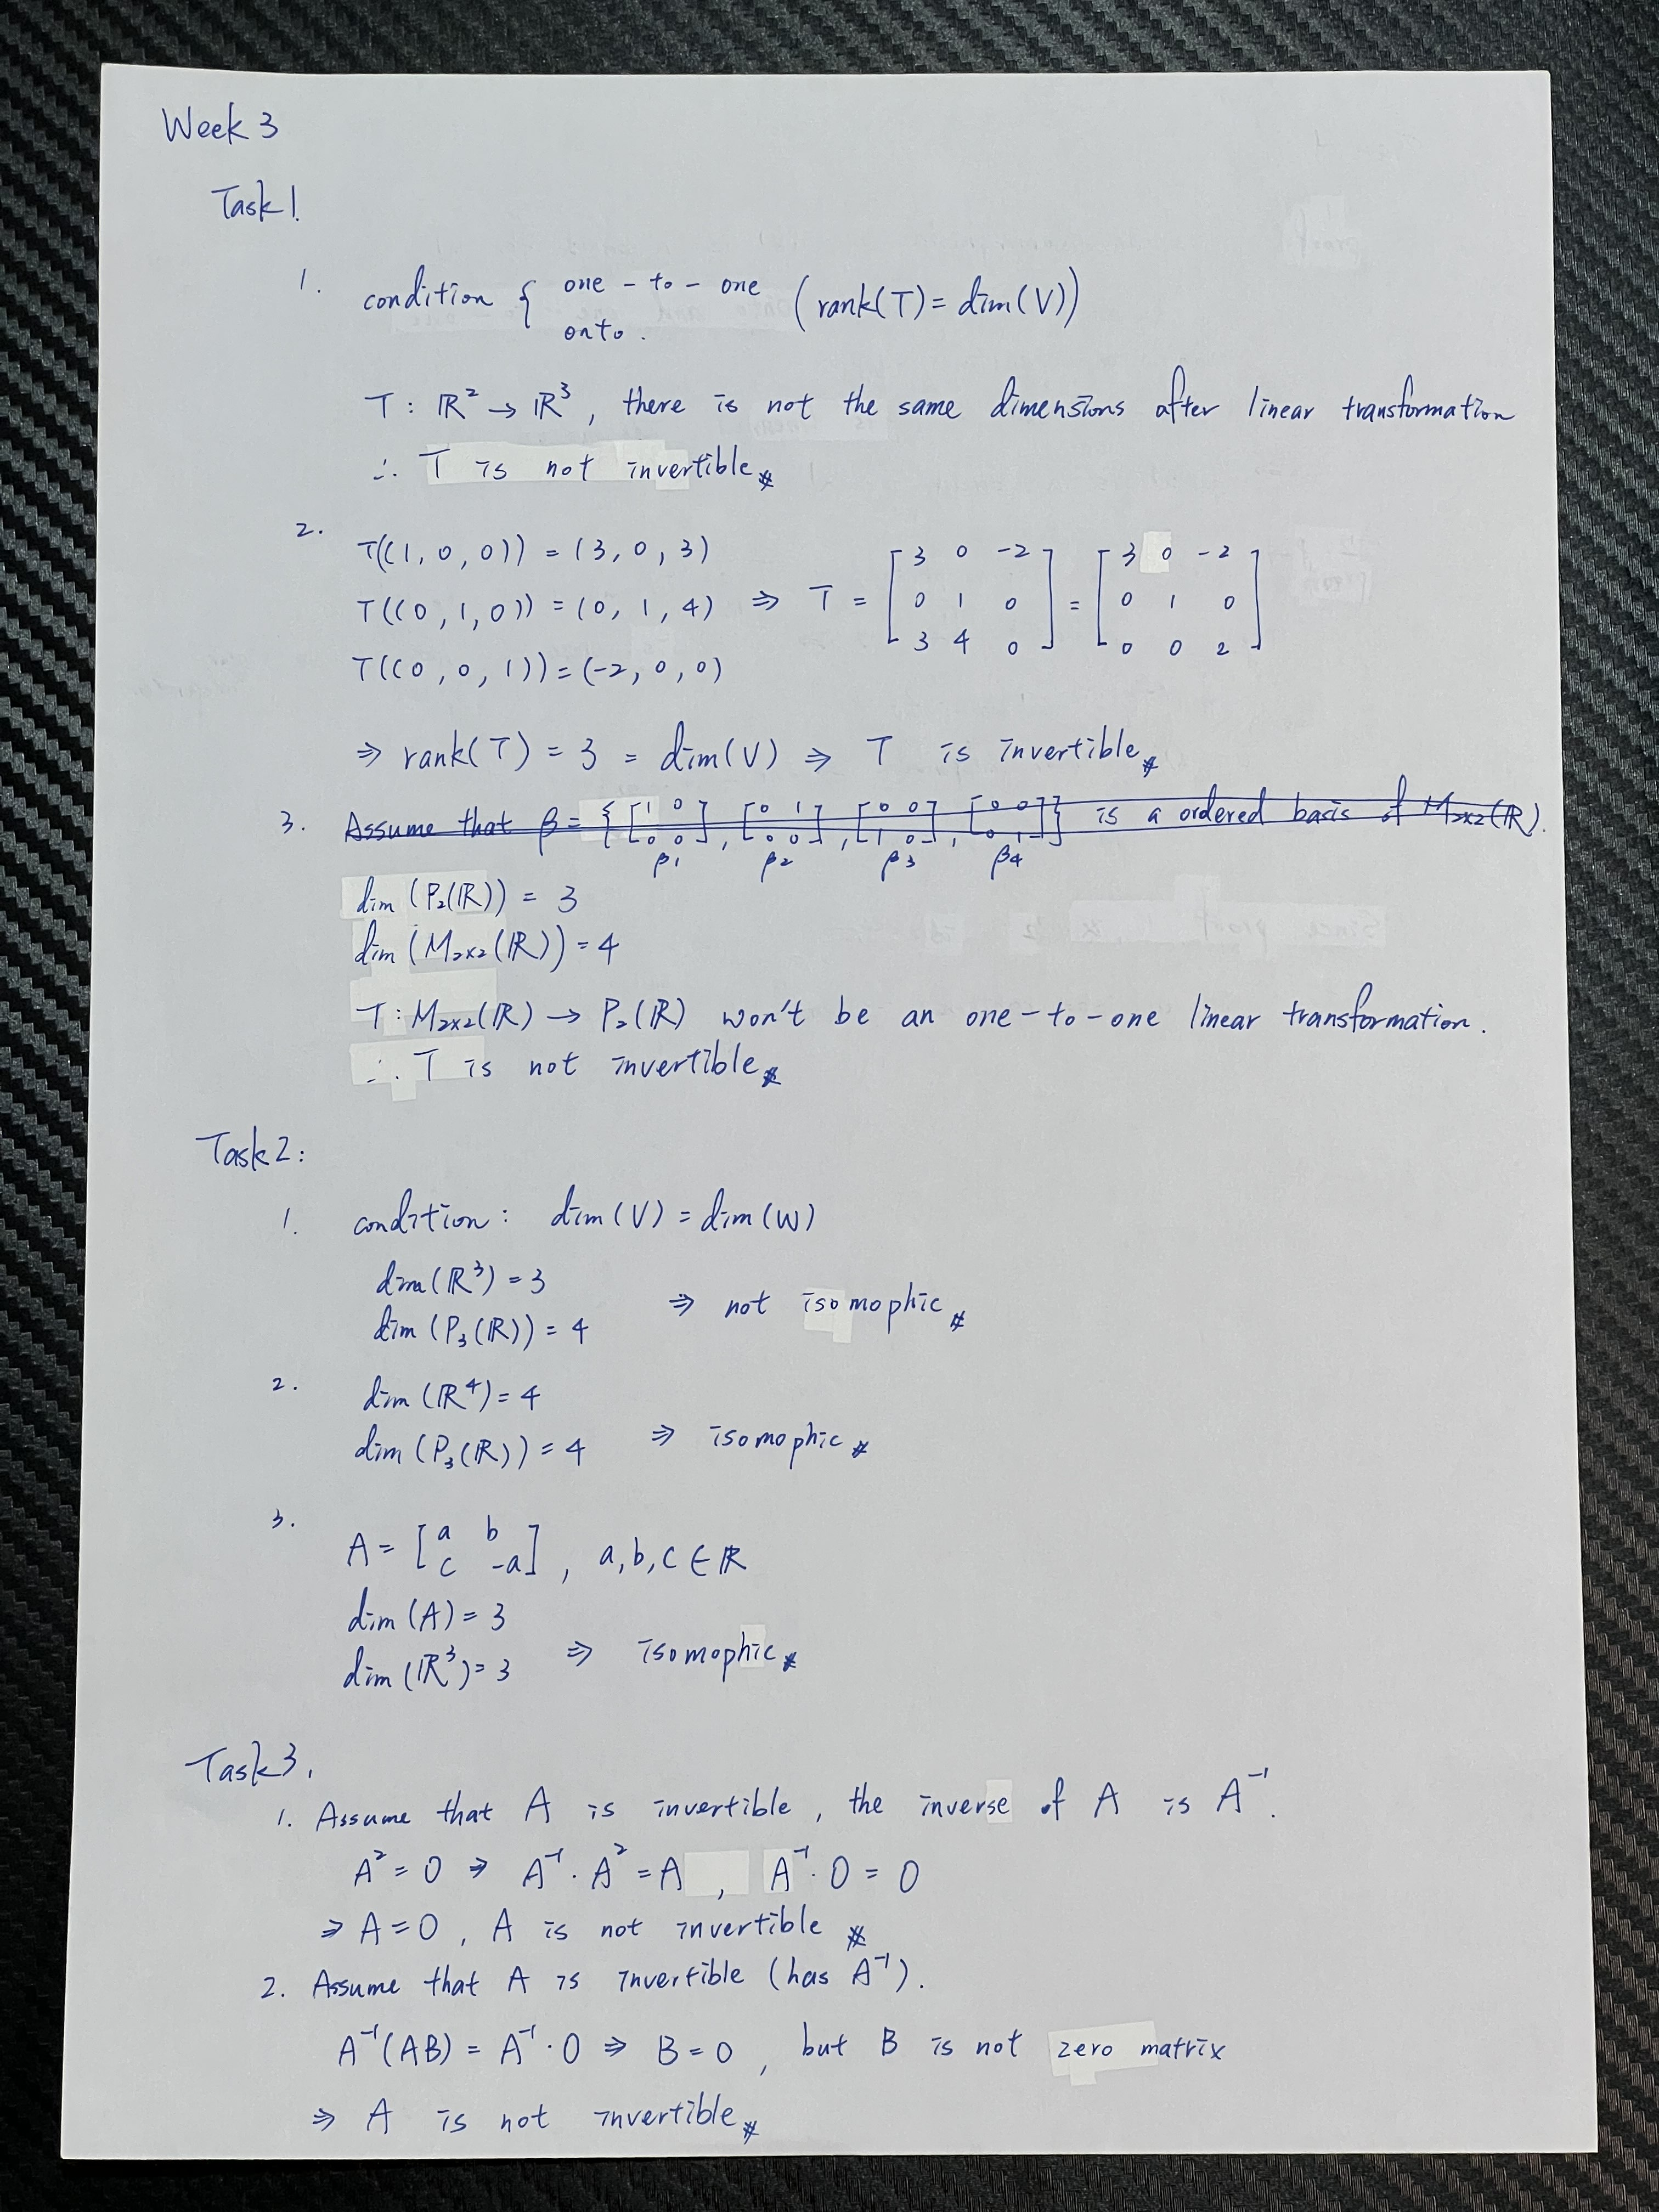 Week 3
Task 1.
1. condition { one-to-one (rank(T) = dim(V))
onto.
T : ℝ² → ℝ³, there is not the same dimensions after linear transformation
∴ T is not invertible #
2. T((1, 0, 0)) = (3, 0, 3)
T((0, 1, 0)) = (0, 1, 4) ⇒ T = [3 0 -2; 0 1 0; 3 4 0] = [3 0 -2; 0 1 0; 0 0 2]
T((0, 0, 1)) = (-2, 0, 0)
⇒ rank(T) = 3 = dim(V) ⇒ T is invertible #
3. Assume that β = {[1 0; 0 0], [0 1; 0 0], [0 0; 1 0], [0 0; 0 1]} is a ordered basis of M₂ₓ₂(ℝ).
β₁ β₂ β₃ β₄
dim (P₂(ℝ)) = 3
dim (M₂ₓ₂(ℝ)) = 4
T : M₂ₓ₂(ℝ) → P₂(ℝ) won't be an one-to-one linear transformation.
∴ T is not invertible #
Task 2:
1. condition : dim(V) = dim(W)
dim(ℝ³) = 3
⇒ not isomophic #
dim (P₃(ℝ)) = 4
2. dim (ℝ⁴) = 4
dim (P₃(ℝ)) = 4 ⇒ isomophic #
3. A = [a b; c -a], a, b, c ∈ ℝ
dim (A) = 3
dim (ℝ³) = 3 ⇒ isomophic #
Task 3.
1. Assume that A is invertible, the inverse of A is A⁻¹.
A² = 0 ⇒ A⁻¹ · A² = A , A⁻¹ · 0 = 0
⇒ A = 0, A is not invertible #
2. Assume that A is invertible (has A⁻¹).
A⁻¹(AB) = A⁻¹ · 0 ⇒ B = 0, but B is not zero matrix
⇒ A is not invertible #